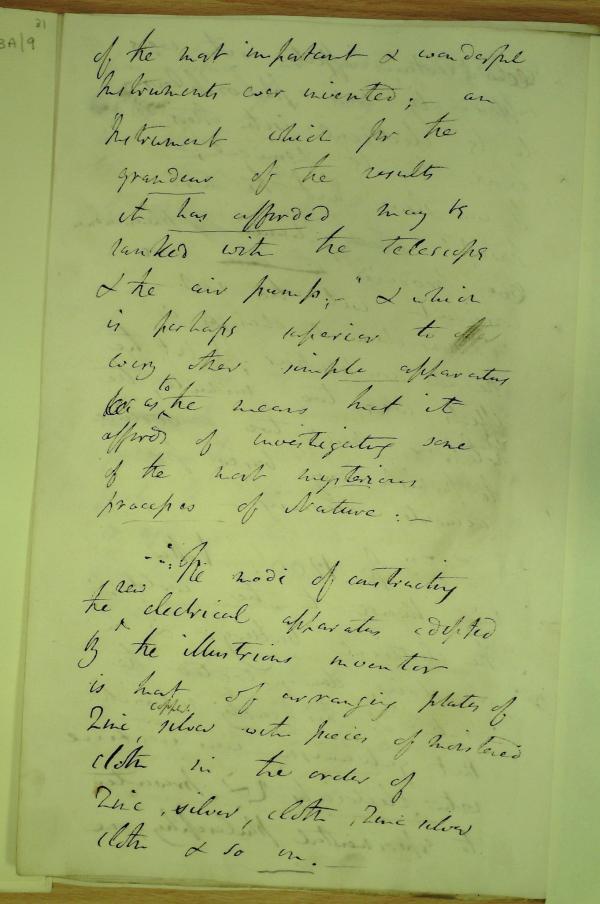 21
3A/9
of the most important & wonderful
Instruments ever invented; – an
Instrument which for the
grandeur of the results
it has afforded may be
ranked with the telescope
& the air pump; –" & which
is perhaps superior to
every other simple apparatus
as to the means that it
affords of investigating some
of the most mysterious
processes of Nature. –
–∴ The mode of constructing
the new electrical apparatus adopted
by the illustrious inventor
is that of arranging plates of
Zinc, copper silver with pieces of moistened
cloth in the order of
Zinc, silver, cloth, Zinc silver
cloth & so on. –